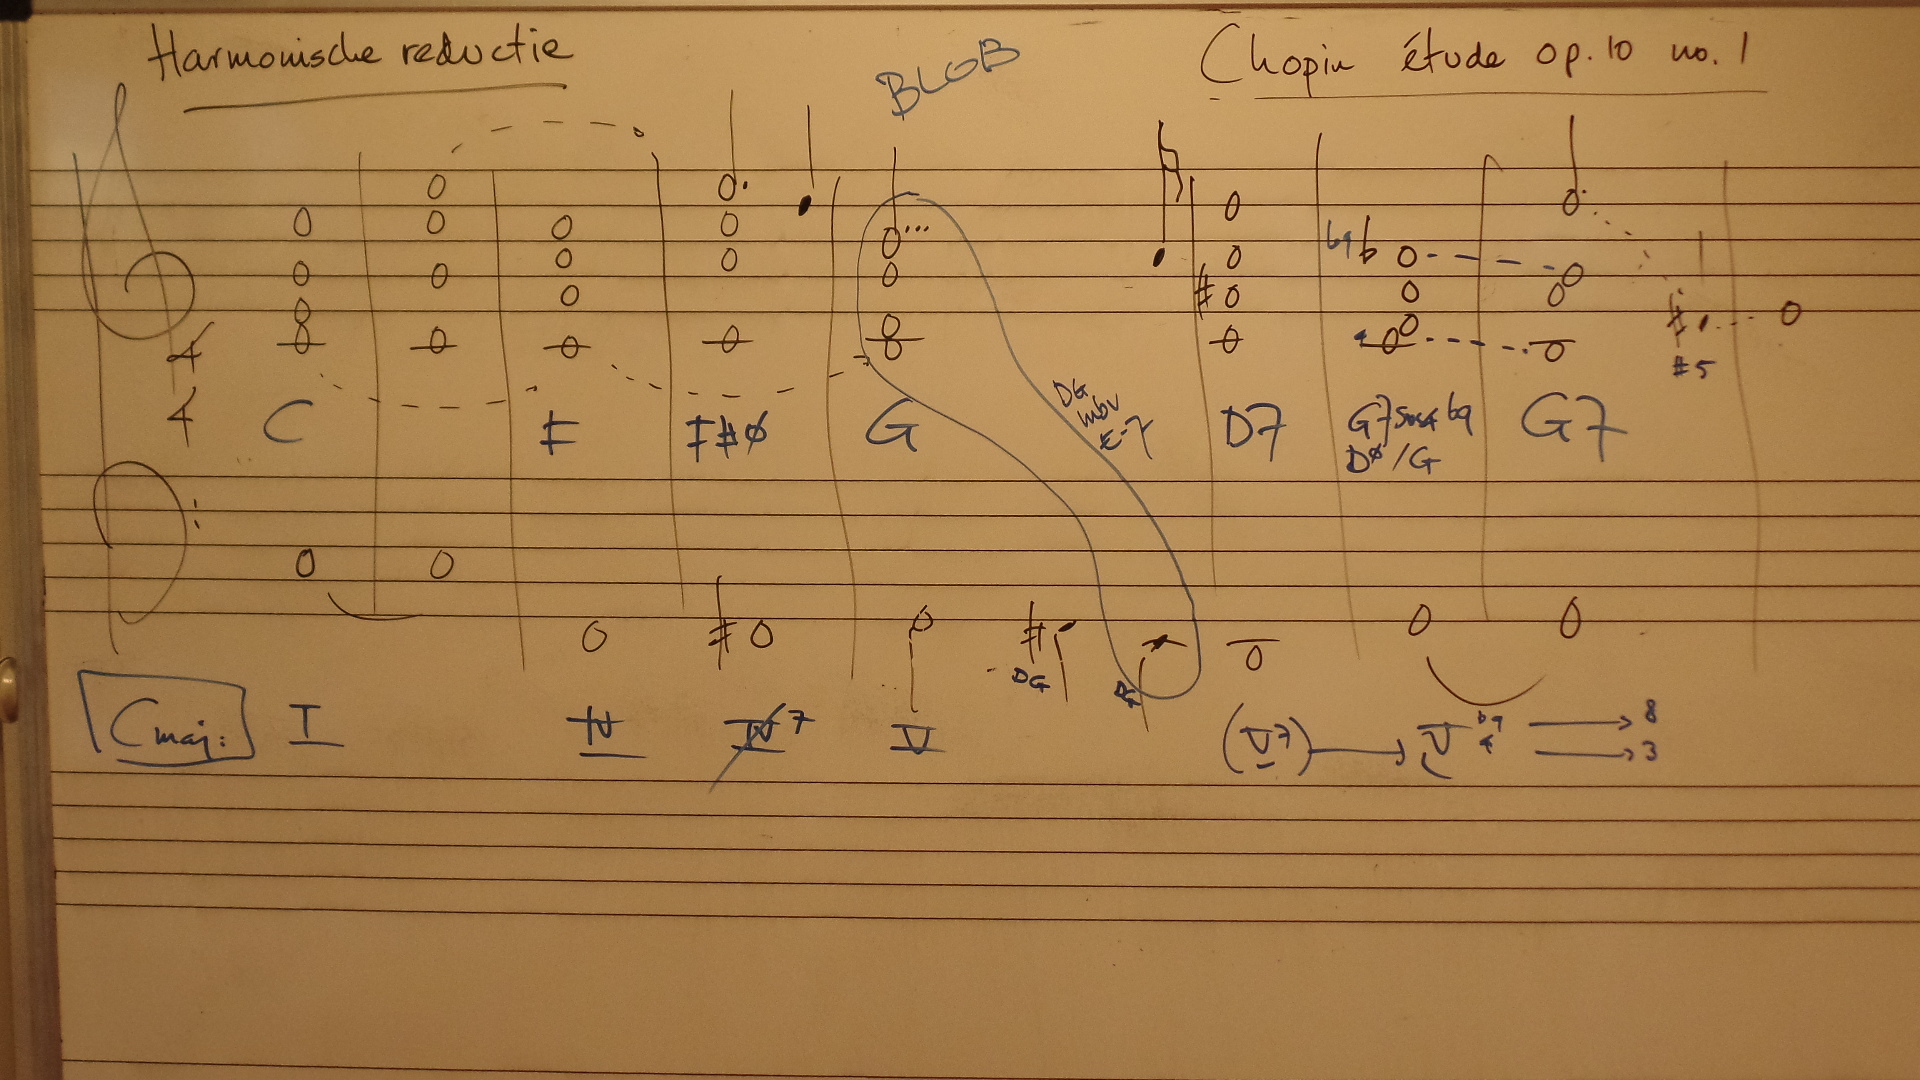 Harmonische reductie
BLOB
Chopin étude op. 10 no. 1
4
4
b9 b
#5
C F F#ø G
DG
mbv
E-7
D7
G7sus4 b9
Dø/G
G7
DG
DG
Cmaj: I IV IV7 V (V7) → V b9 4 → 8 → 3